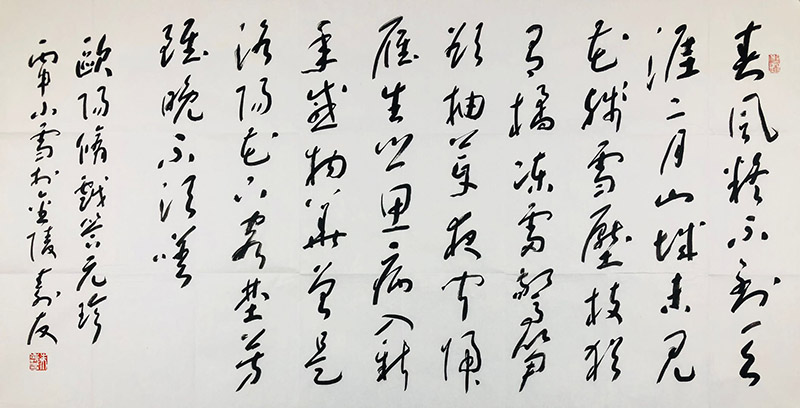 春風疑不到天
涯二月山城未見
花殘雪壓枝猶
有橘凍雷驚筍
欲抽芽夜聞歸
雁生鄉思病入新
年感物華曾是
洛陽花下客埜芳
雖晚不須嗟
歐陽脩戲答元珍
丙申小雪於金陵友